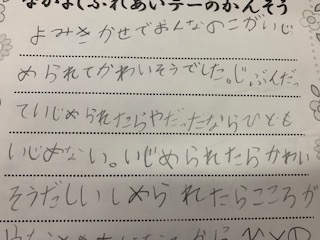 なかよしふれあいデーのかんそう
よみきかせでおんなのこがいじ
められてかわいそうでした。じぶんだっ
ていじめられたらやだったならひとも
いじめない。いじめられたらかわい
そうだしいじめられたらこころが